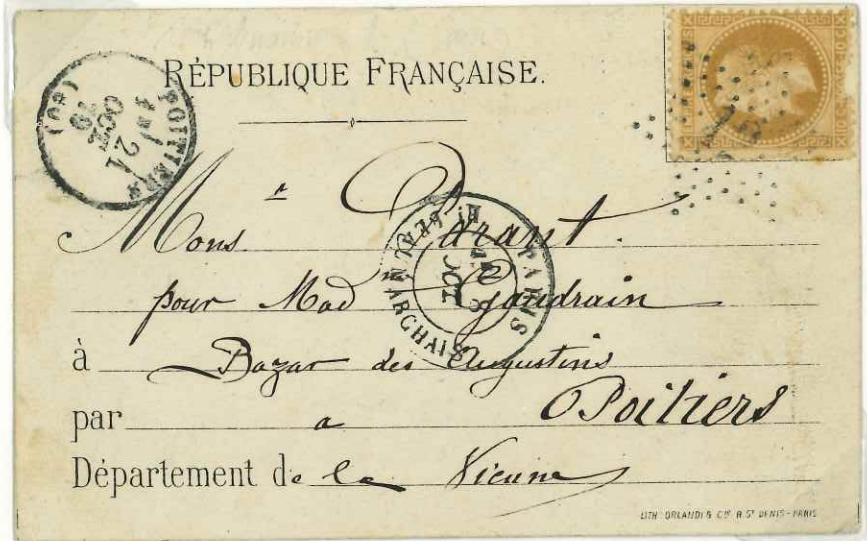 RÉPUBLIQUE FRANÇAISE.
POITIERS
21
OCT.
70
(80)
Mons.r Parant.
PARIS
Bt BEAUMARCHAIS
OCT.
pour Mad.me Gaudrain
à Bazar des Augustins
par a Poitiers
Département de la Vienne
LITH. ORLANDI & Cie R. St DENIS - PARIS